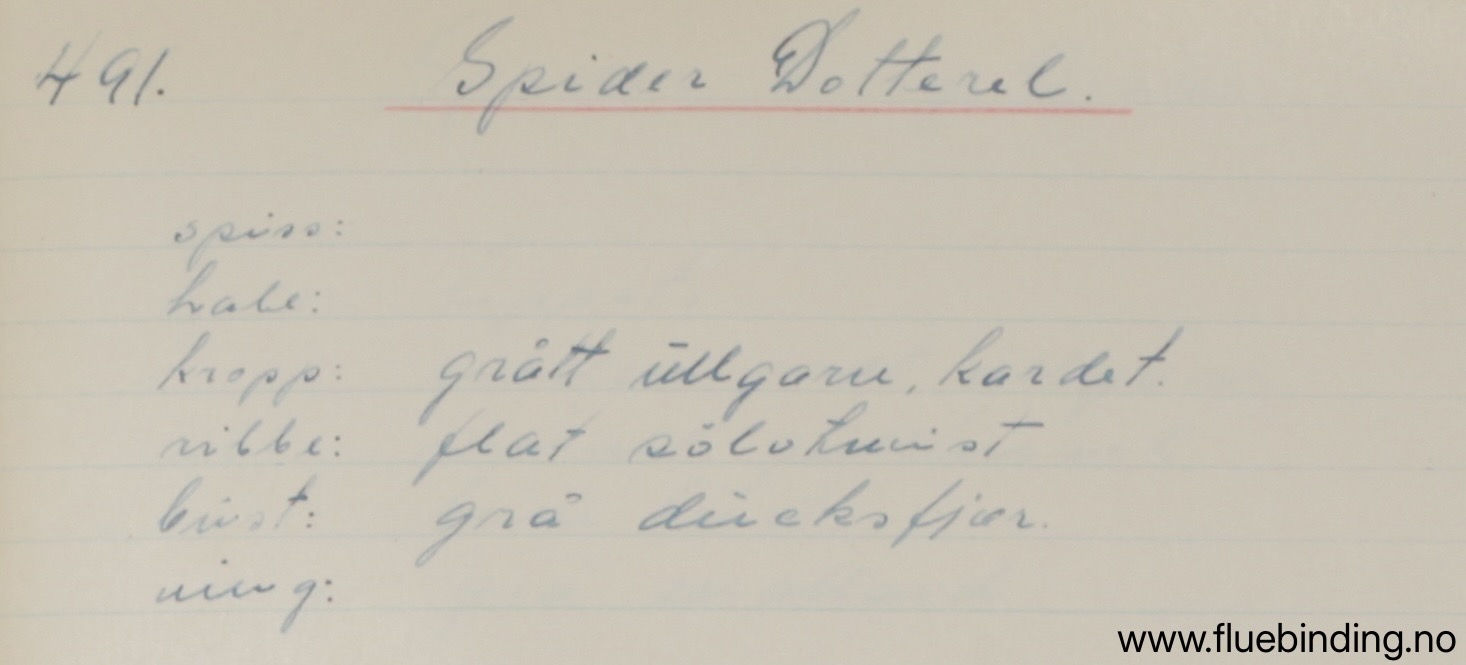 491. Spider Dotterel.
spiss:
hale:
kropp: grått ullgarn, kardet.
ribbe: flat sölvtwist
bust: grå ducksfjær.
ving:
www.fluebinding.no